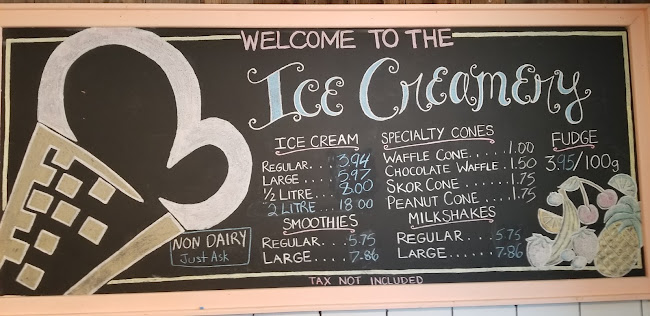 WELCOME TO THE
Ice Creamery
ICE CREAM
REGULAR....3.94
LARGE....5.97
½ LITRE...8.00
2 LITRE...18.00
SMOOTHIES
REGULAR....5.75
LARGE....7.86
SPECIALTY CONES
WAFFLE CONE.....1.00
CHOCOLATE WAFFLE.1.50
SKOR CONE.....1.75
PEANUT CONE....1.75
MILKSHAKES
REGULAR....5.75
LARGE......7.86
FUDGE
3.95/100g
NON DAIRY
Just Ask
TAX NOT INCLUDED